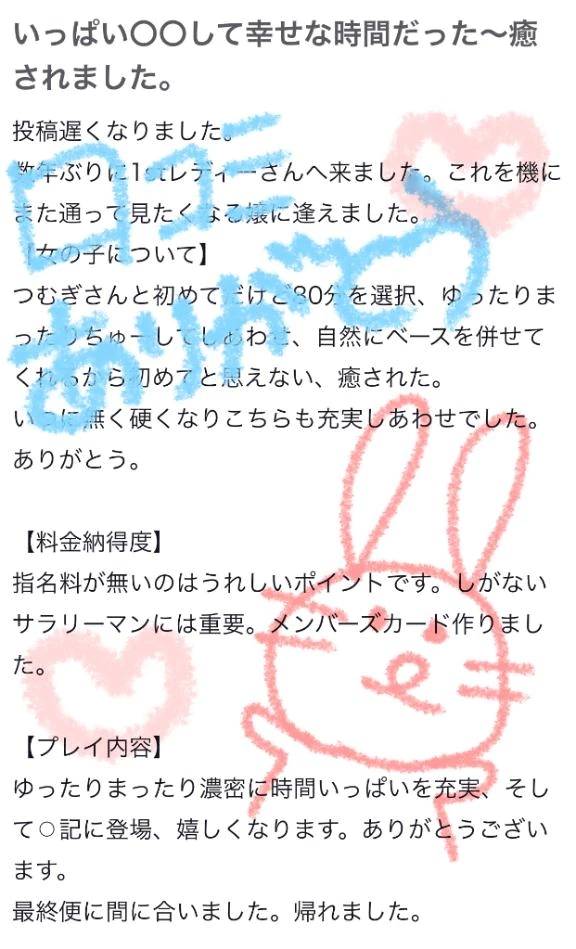 いっぱい〇〇して幸せな時間だった〜癒
されました。
投稿遅くなりました。
数年ぶりに1stレディーさんへ来ました。これを機に
また通って見たくなる嬢に逢えました。
【女の子について】
つむぎさんと初めてだけど80分を選択、ゆったりま
ったりちゅーしてしあわせ、自然にペースを併せて
くれるから初めてと思えない、癒された。
いつに無く硬くなりこちらも充実しあわせでした。
ありがとう。
【料金納得度】
指名料が無いのはうれしいポイントです。しがない
サラリーマンには重要。メンバーズカード作りまし
た。
【プレイ内容】
ゆったりまったり濃密に時間いっぱいを充実、そし
て○記に登場、嬉しくなります。ありがとうござい
ます。
最終便に間に合いました。帰れました。
口コミ
ありがとう